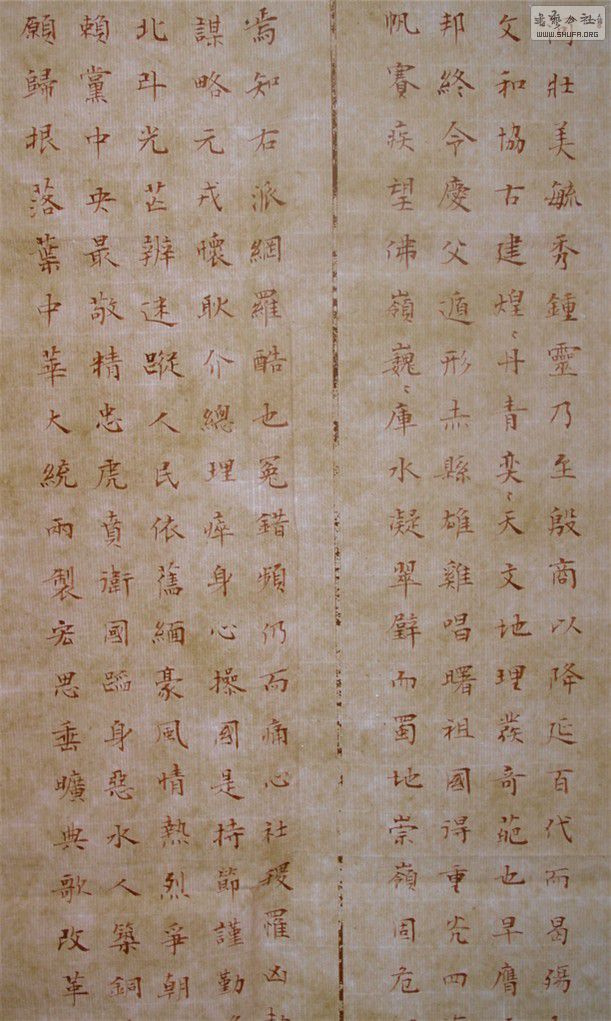 書藝公社
WWW.SHUFA.ORG
壯美毓秀鍾靈乃至殷商以降延百代而曷殤
文和協古建煌〻丹青奕〻天文地理發奇葩也早膺
邦終令慶父遁形赤縣雄雞唱曙祖國得重光四
帆賽疾望佛嶺巍〻庫水凝翠壁而蜀地崇嶺固危
焉知右派網羅酷也冤錯頻仍而痛心社稷罹凶
謀略元戎懷耿介總理瘁身心操國是持節謹勤
北斗光芒辦迷蹤人民依舊緬豪風情熱烈爭朝
賴黨中央最敬精忠虎賁衛國蹈身惡水人築銅
願歸根落葉中華大統兩製宏思垂曠典歌改革